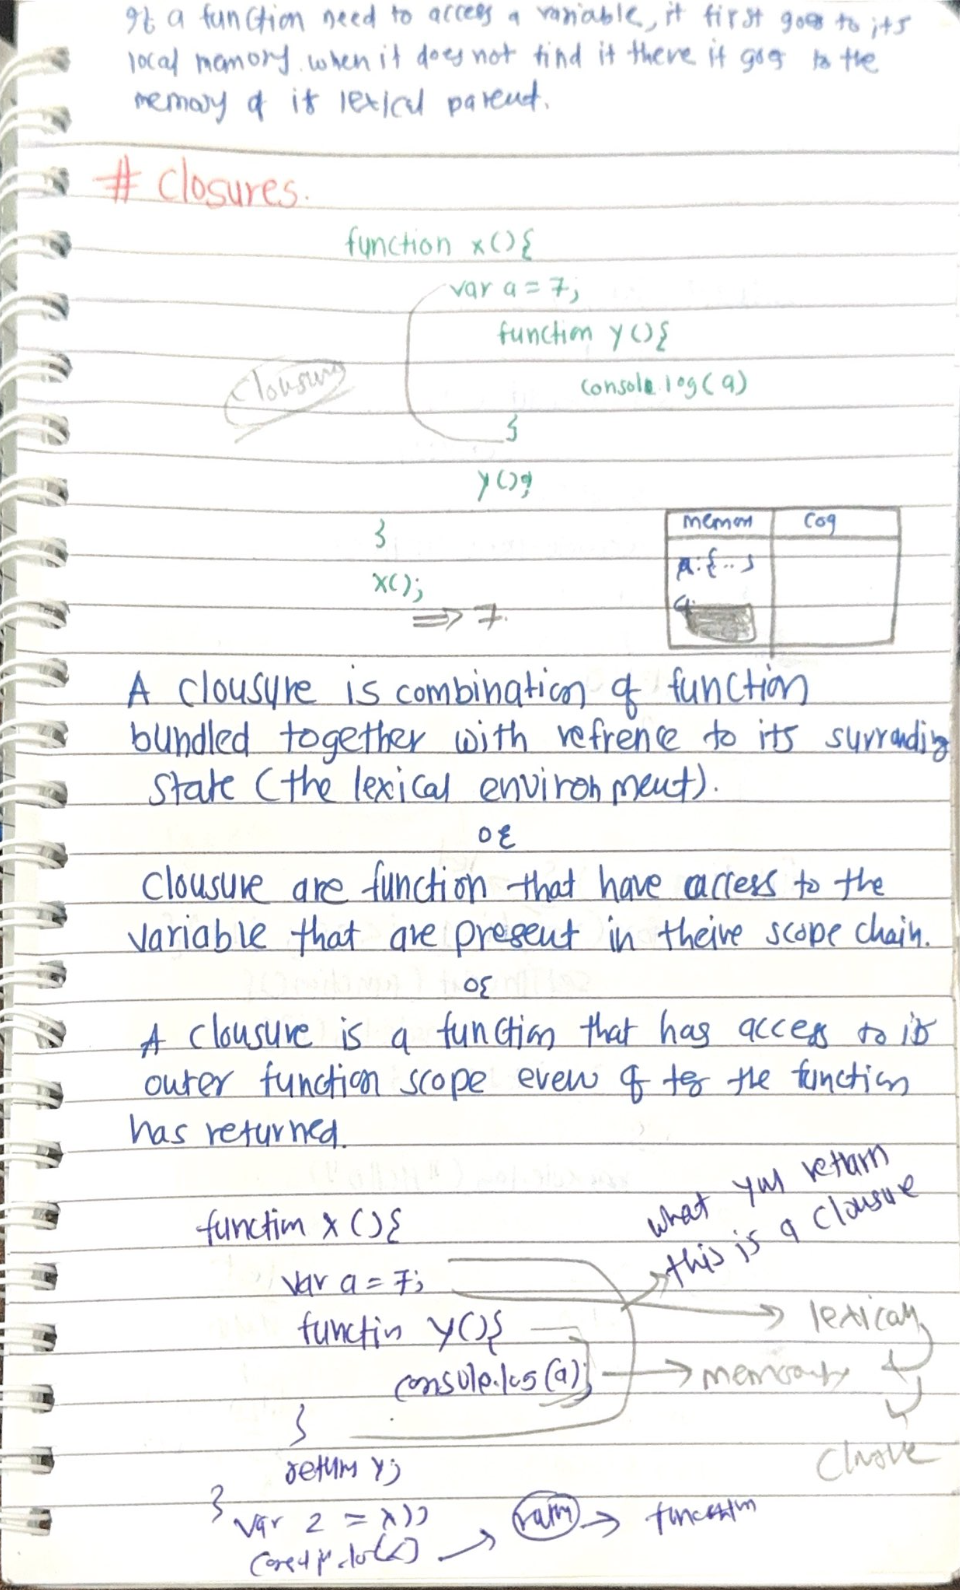 If a function need to access a variable, it first goes to its
local memory. when it does not find it there it goes to the
memory of it lexical parent.
# Closures.
function x(){
var a = 7;
function y(){
console.log(a)
}
Clousure
y();
}
x();
=> 7.
memory
a:
A clousure is combination of function
bundled together with refrence to its surrounding
state (the lexical environment).
OR
Clousure are function that have access to the
variable that are present in theire scope chain.
OR
A clousure is a function that has access to its
outer function scope even after the function
has returned.
what you return
this is a clousure
function x(){
var a = 7;
function y(){
console.log(a);
}
return y;
}
lexical
memory
var z = x();
function